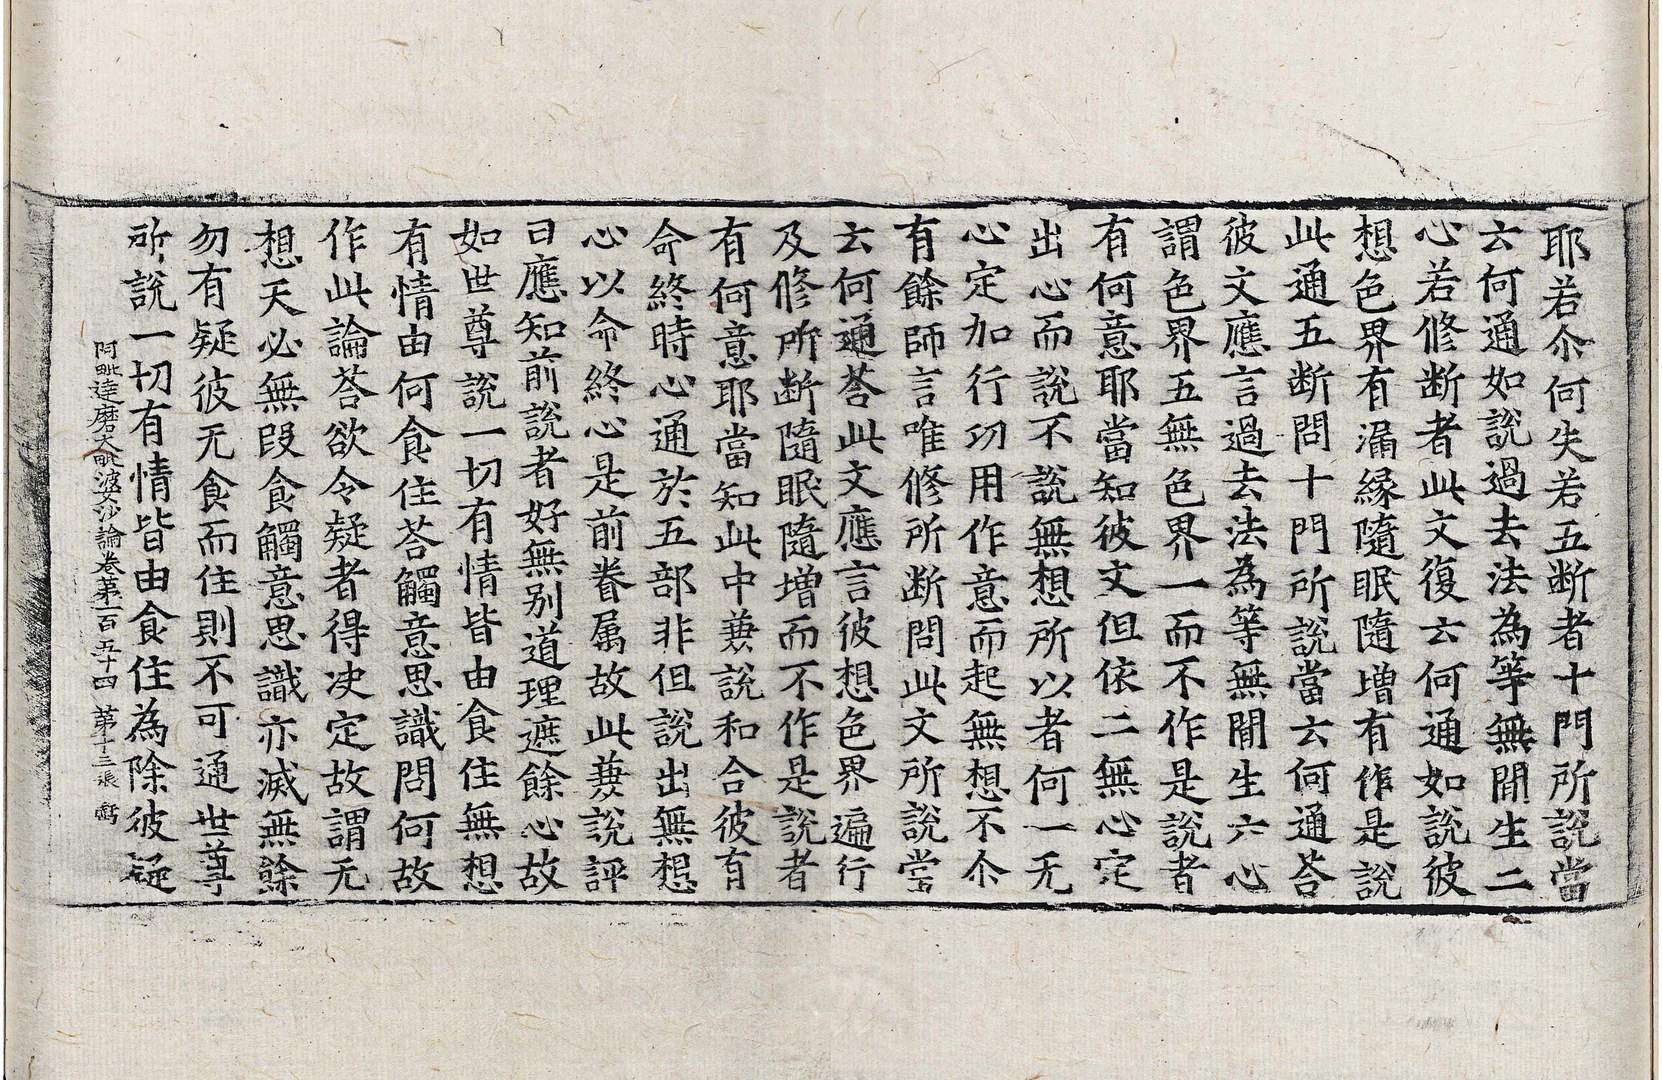 耶若尒何失若五断者十門所説當
云何通如説過去法為等無閒生二
心若修断者此文復云何通如説彼
想色界有漏縁隨眠隨増有作是説
此通五断問十門所説當云何通荅
彼文應言過去法為等無閒生六心
謂色界五無色界一而不作是説者
有何意耶當知彼文但依二無心定
出心而説不説無想所以者何一无
心定加行功用作意而起無想不尒
有餘師言唯修所断問此文所説當
云何通荅此文應言彼想色界遍行
及修所断隨眠隨増而不作是説者
有何意耶當知此中兼説和合彼有
命終時心通於五部非但説出無想
心以命終心是前眷属故此兼説評
曰應知前説者好無别道理遮餘心故
如世尊説一切有情皆由食住無想
有情由何食住荅觸意思識問何故
作此論荅欲令疑者得决定故謂无
想天必無段食觸意思識亦滅無餘
勿有疑彼无食而住則不可通世尊
所説一切有情皆由食住為除彼疑
阿毗達磨大毗婆沙論卷第一百五十四 第十三張